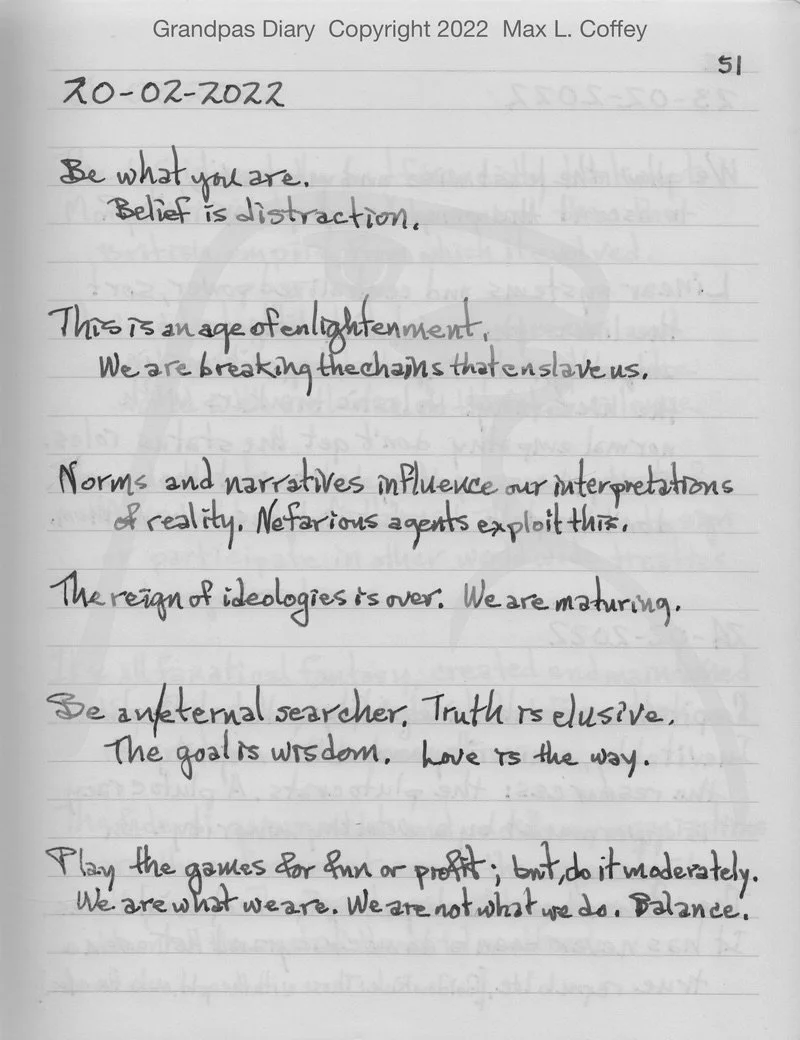 Grandpas Diary Copyright 2022 Max L. Coffey
51
20-02-2022
Be what you are.
Belief is distraction.
This is an age of enlightenment.
We are breaking the chains that enslave us.
Norms and narratives influence our interpretations
of reality. Nefarious agents exploit this.
The reign of ideologies is over. We are maturing.
Be an/eternal searcher. Truth is elusive.
The goal is wisdom. Love is the way.
Play the games for fun or profit; but, do it moderately.
We are what we are. We are not what we do. Balance.